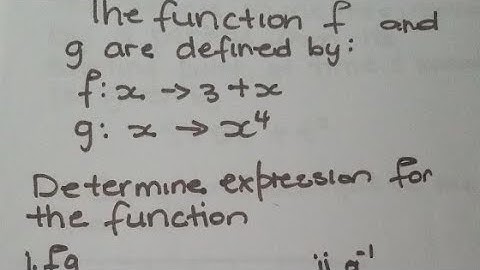 The function f and
g are defined by:
f: x → 3 + x
g: x → x⁴
Determine expression for
the function
i. fg ii g⁻¹